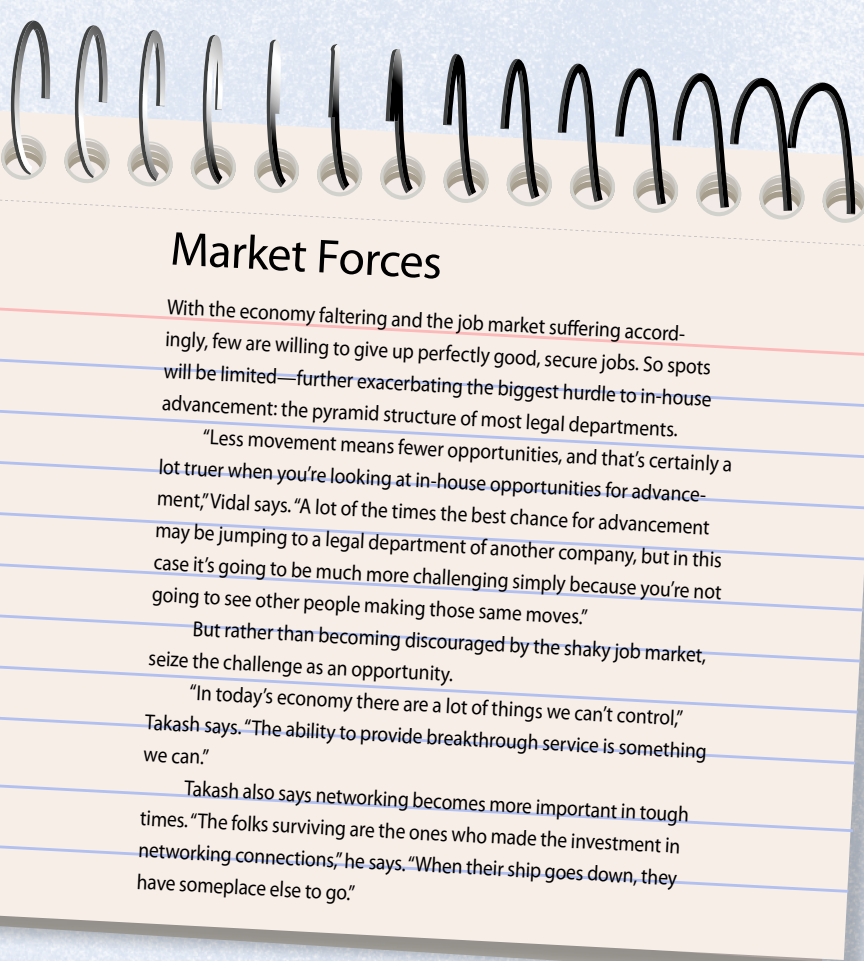 Market Forces
With the economy faltering and the job market suffering accord-
ingly, few are willing to give up perfectly good, secure jobs. So spots
will be limited—further exacerbating the biggest hurdle to in-house
advancement: the pyramid structure of most legal departments.
“Less movement means fewer opportunities, and that’s certainly a
lot truer when you’re looking at in-house opportunities for advance-
ment,” Vidal says. “A lot of the times the best chance for advancement
may be jumping to a legal department of another company, but in this
case it’s going to be much more challenging simply because you’re not
going to see other people making those same moves.”
But rather than becoming discouraged by the shaky job market,
seize the challenge as an opportunity.
“In today’s economy there are a lot of things we can’t control,”
Takash says. “The ability to provide breakthrough service is something
we can.”
Takash also says networking becomes more important in tough
times. “The folks surviving are the ones who made the investment in
networking connections,” he says. “When their ship goes down, they
have someplace else to go.”